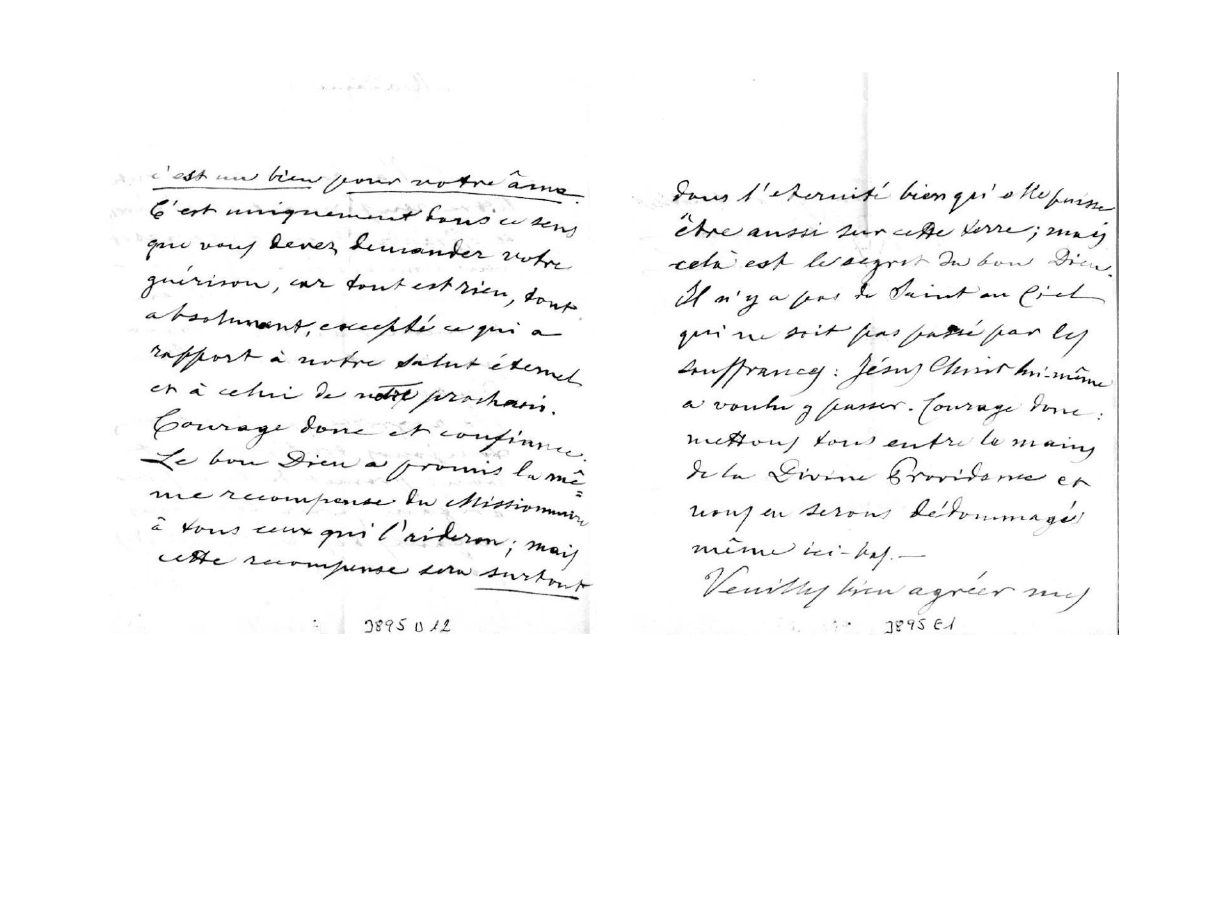 c'est un bien pour votre âme
C'est uniquement dans ce sens
que vous devez demander votre
guérison, car tout est rien, tout
absolument, excepté ce qui a
rapport à notre salut éternel
et à celui de notre prochain.
Courage donc et confiance.
Le bon Dieu a promis la mê=
me recompense du Missionnaire
à tous ceux qui l'aideron; mais
cette recompense sera surtout
J895 D 12
dans l'eternité bien qu'elle puisse
être aussi sur cette terre; mais
celà est le segret du bon Dieu.
Il n'y a pas de Saint au Ciel
qui ne soit pas passé par les
souffrances: Jésus Christ lui-même
a voulu y passer. Courage donc:
mettons tous entre le mains
de la Divine Providence et
nous en serons dédommagés
même ici-bas.—
Veuillez bien agréer mes
J895 E1